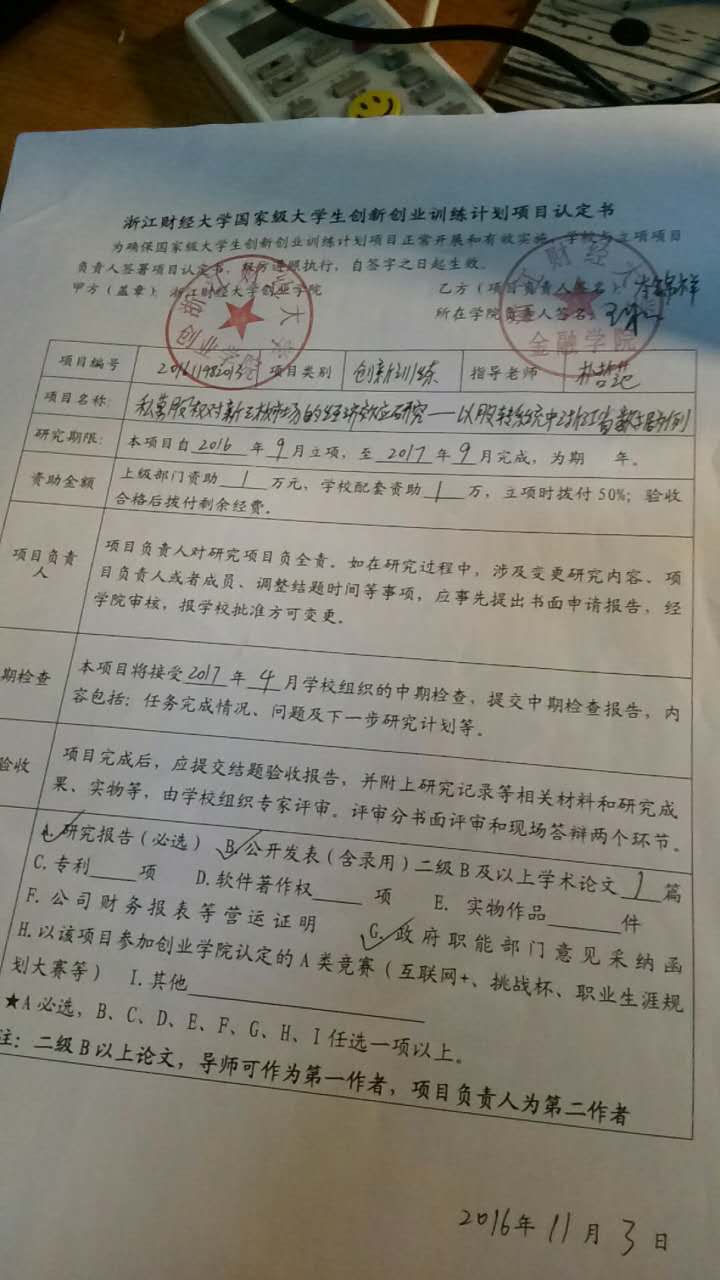 浙江财经大学国家级大学生创新创业训练计划项目认定书
为确保国家级大学生创新创业训练计划项目正常开展和有效实施，学校与立项项目
负责人签署项目认定书，双方遵照执行，自签字之日起生效。
甲方（盖章）：浙江财经大学创业学院 乙方（项目负责人签名）：
所在学院负责人签名：
金融学院
项目编号 项目类别 创新训练 指导老师
项目名称： 私募股权对新三板市场的经济效应研究——以股转系统中浙江省数据为例
研究期限： 本项目自2016年9月立项，至2017年9月完成，为期 年。
资助金额 上级部门资助1万元，学校配套资助1万，立项时拨付50%；验收
合格后拨付剩余经费。
项目负责人 项目负责人对研究项目负全责。如在研究过程中，涉及变更研究内容、项
目负责人或者成员、调整结题时间等事项，应事先提出书面申请报告，经
学院审核，报学校批准方可变更。
期检查 本项目将接受2017年4月学校组织的中期检查，提交中期检查报告，内
容包括：任务完成情况、问题及下一步研究计划等。
验收 项目完成后，应提交结题验收报告，并附上研究记录等相关材料和研究成
果、实物等，由学校组织专家评审。评审分书面评审和现场答辩两个环节。
A.研究报告（必选） B.公开发表（含录用）二级B及以上学术论文1篇
C.专利____项 D.软件著作权____项 E. 实物作品____件
F.公司财务报表等营运证明 G.政府职能部门意见采纳函
H.以该项目参加创业学院认定的A类竞赛（互联网+、挑战杯、职业生涯规
划大赛等） I.其他____
★A必选，B、C、D、E、F、G、H、I任选一项以上。
注：二级B以上论文，导师可作为第一作者，项目负责人为第二作者
2016年11月3日